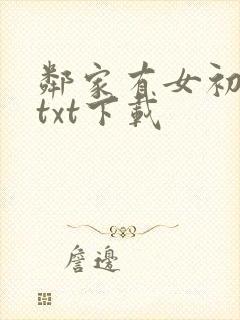 鄰家有女初
txt下載
詹邊